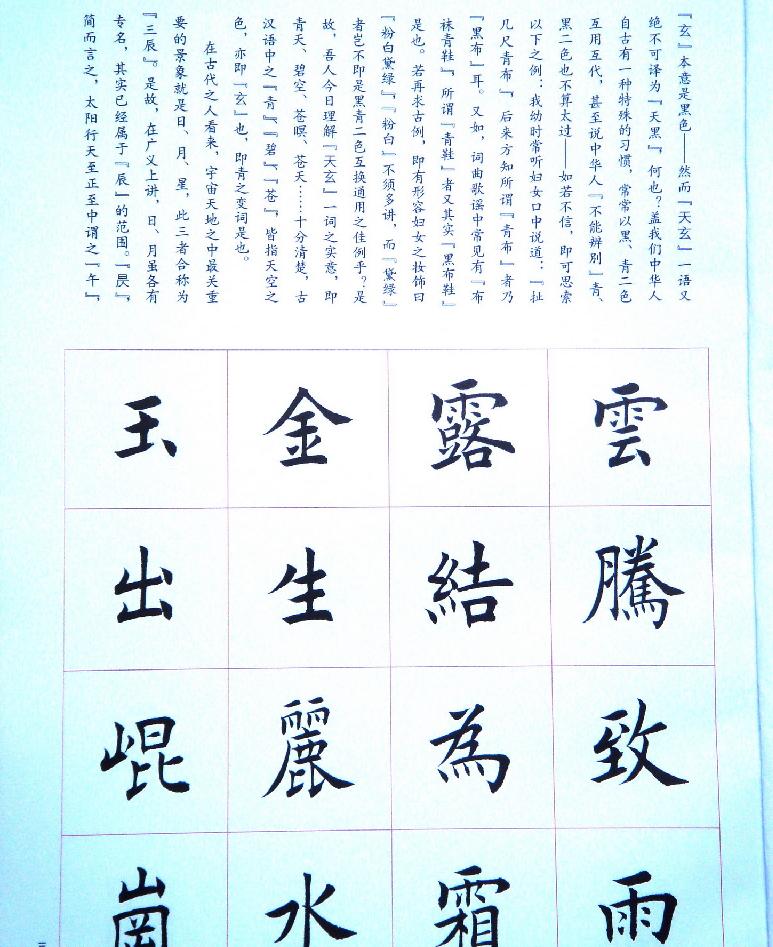 『玄』本意是黑色——然而『天玄』一语又
绝不可译为『天黑』。何也？盖我们中华人
自古有一种特殊的习惯，常常以黑、青二色
互用互代，甚至说中华人『不能辨别』青、
黑二色也不算太过——如若不信，即可思索
以下之例：我幼时常听妇女口中说道：『扯
几尺青布』，后来方知所谓『青布』者乃
『黑布』耳。又如，词曲歌谣中常见有『布
袜青鞋』，所谓『青鞋』者又其实『黑布鞋』
是也。若再求古例，即有形容妇女之妆饰曰
『粉白黛绿』，『粉白』不须多讲，而『黛绿』
者岂不即是黑青二色互换通用之佳例乎？是
故，吾人今日理解『天玄』一词之实意，即
青天、碧空、苍暝、苍天……十分清楚，古
汉语中之『青』、『碧』、『苍』，皆指天空之
色，亦即『玄』也，即青之变词是也。
在古代之人看来，宇宙天地之中最关重
要的景象就是日、月、星，此三者合称为
『三辰』。是故，在广义上讲，日、月虽各有
专名，其实已经属于『辰』的范围。『昃』，
简而言之，太阳行天至正至中谓之『午』，
雲騰致雨
露結為霜
金生麗水
玉出崐崗